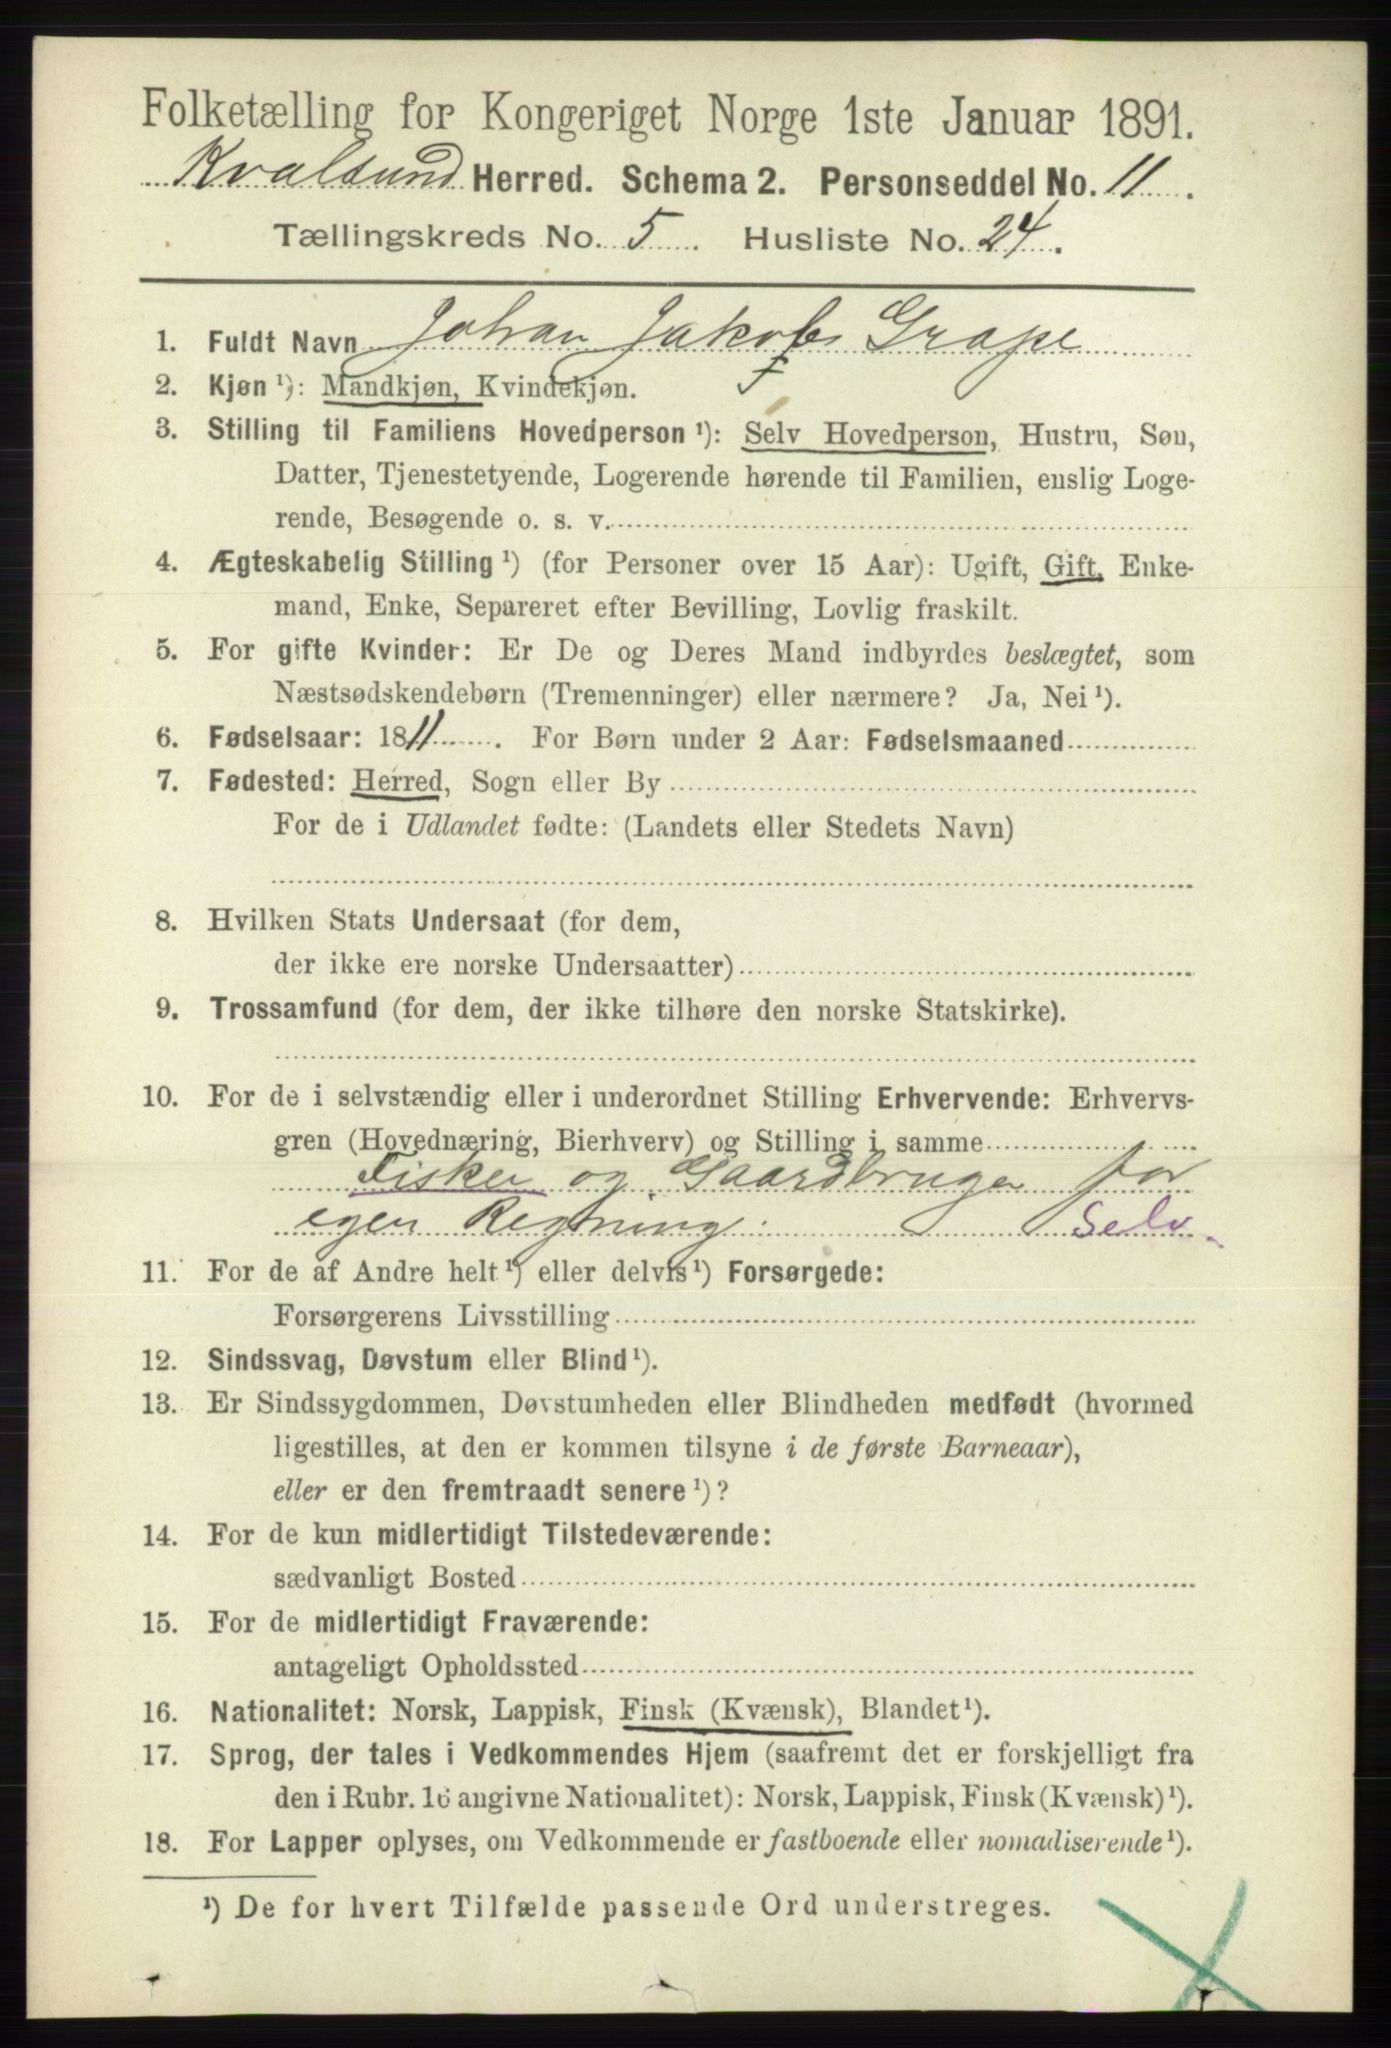 Folketælling for Kongeriget Norge 1ste Januar 1891.
Kvalsund Herred. Schema 2. Personseddel No. 11.
Tællingskreds No. 5. Husliste No. 24.
1. Fuldt Navn Johan Jakobs Grape
2. Kjøn ¹): Mandkjøn, Kvindekjøn.
3. Stilling til Familiens Hovedperson ¹): Selv Hovedperson, Hustru, Søn,
Datter, Tjenestetyende, Logerende hørende til Familien, enslig Loge-
rende, Besøgende o. s. v.
4. Ægteskabelig Stilling ¹) (for Personer over 15 Aar): Ugift, Gift, Enke-
mand, Enke, Separeret efter Bevilling, Lovlig fraskilt.
5. For gifte Kvinder: Er De og Deres Mand indbyrdes beslægtet, som
Næstsødskendebørn (Tremenninger) eller nærmere? Ja, Nei ¹).
6. Fødselsaar: 1811. For Børn under 2 Aar: Fødselsmaaned
7. Fødested: Herred, Sogn eller By
For de i Udlandet fødte: (Landets eller Stedets Navn)
8. Hvilken Stats Undersaat (for dem,
der ikke ere norske Undersaatter)
9. Trossamfund (for dem, der ikke tilhøre den norske Statskirke).
10. For de i selvstændig eller i underordnet Stilling Erhvervende: Erhvervs-
gren (Hovednæring, Bierhverv) og Stilling i samme
Fisker og Gaardbruger for
egen Regning. Selv
11. For de af Andre helt ¹) eller delvis ¹) Forsørgede:
Forsørgerens Livsstilling
12. Sindssvag, Døvstum eller Blind ¹).
13. Er Sindssygdommen, Døvstumheden eller Blindheden medfødt (hvormed
ligestilles, at den er kommen tilsyne i de første Barneaar),
eller er den fremtraadt senere ¹)?
14. For de kun midlertidigt Tilstedeværende:
sædvanligt Bosted
15. For de midlertidigt Fraværende:
antageligt Opholdssted
16. Nationalitet: Norsk, Lappisk, Finsk (Kvænsk), Blandet ¹).
17. Sprog, der tales i Vedkommendes Hjem (saafremt det er forskjelligt fra
den i Rubr. 16 angivne Nationalitet): Norsk, Lappisk, Finsk (Kvænsk) ¹).
18. For Lapper oplyses, om Vedkommende er fastboende eller nomadiserende ¹).
¹) De for hvert Tilfælde passende Ord understreges.